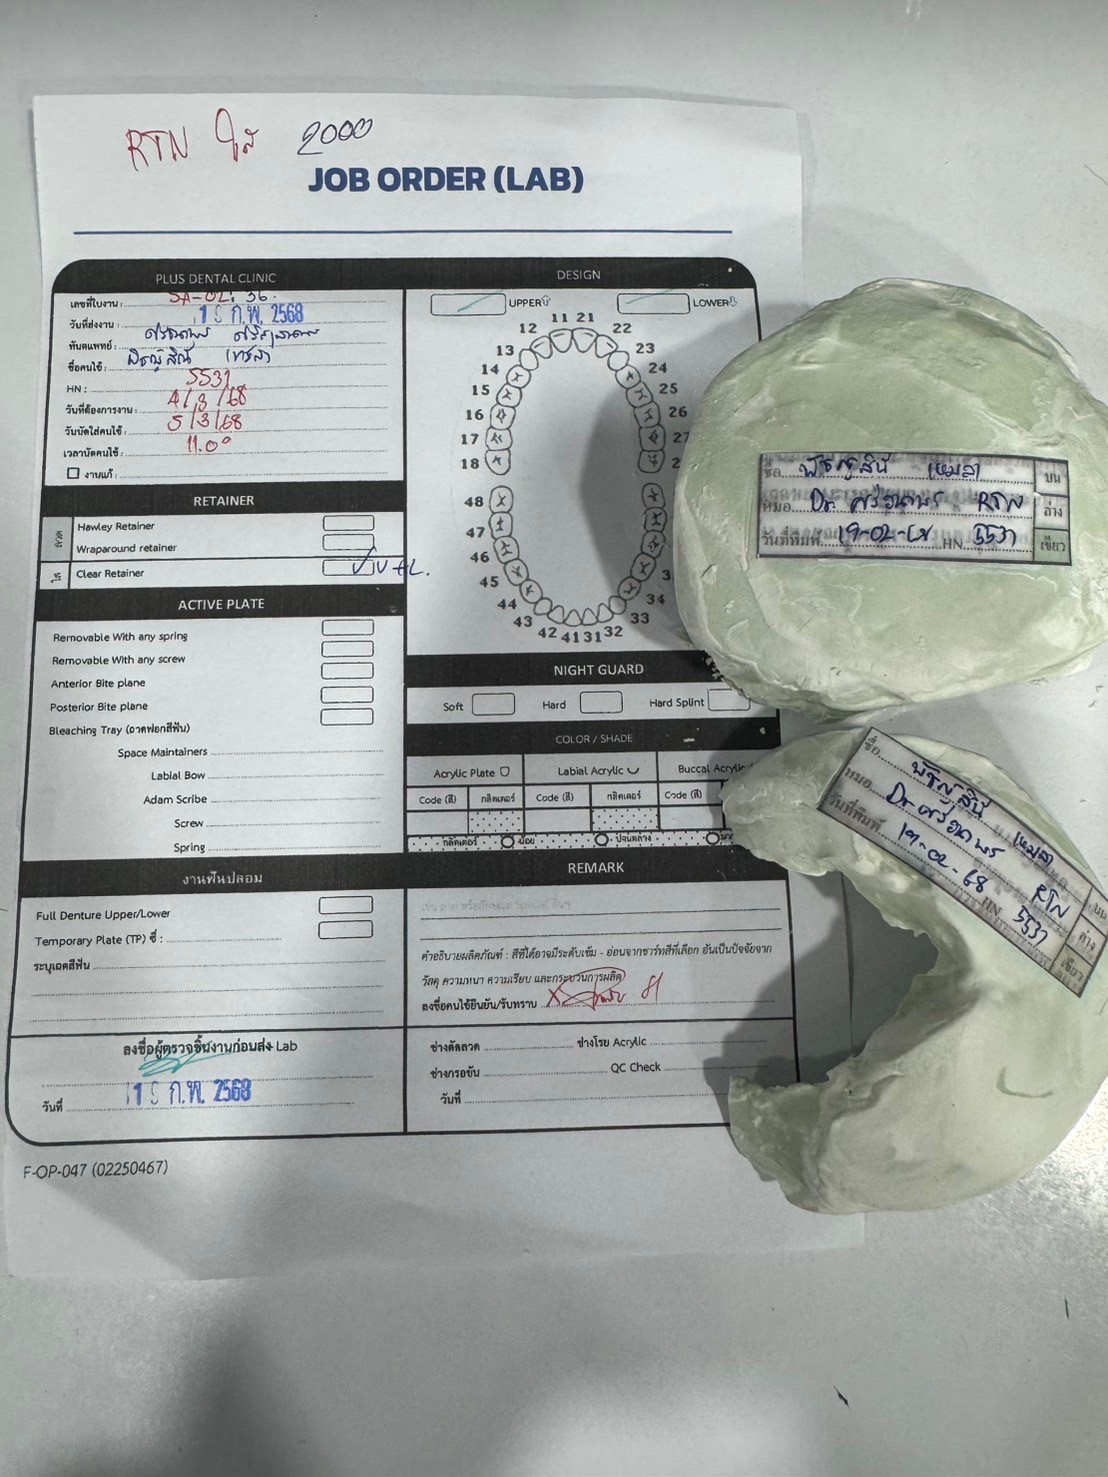 RTN ใส 2000
JOB ORDER (LAB)
PLUS DENTAL CLINIC
เลขที่ใบงาน : SA-02. 36.
วันที่ส่งงาน : 19 ก.พ. 2568
ทันตแพทย์ :
ชื่อคนไข้ :
HN : 5531
วันที่ต้องการงาน : 4/3/68
วันนัดใส่คนไข้ : 5/3/68
เวลานัดคนไข้ : 11.00
งานแก้ :
RETAINER
ลวด
Hawley Retainer
Wraparound retainer
ใส
Clear Retainer U+L.
ACTIVE PLATE
Removable With any spring
Removable With any screw
Anterior Bite plane
Posterior Bite plane
Bleaching Tray (ถาดฟอกสีฟัน)
Space Maintainers
Labial Bow
Adam Scribe
Screw
Spring
งานฟันปลอม
Full Denture Upper/Lower
Temporary Plate (TP) ซี่ :
ระบุเฉดสีฟัน
ลงชื่อผู้ตรวจชิ้นงานก่อนส่ง Lab
วันที่ 19 ก.พ. 2568
DESIGN
UPPER LOWER
11 21
12 22
13 23
14 24
15 25
16 26
17 27
18 2
48
47
46 3
45 34
44 33
43 32
42 41 31
NIGHT GUARD
Soft Hard Hard Splint
COLOR / SHADE
Acrylic Plate Labial Acrylic Buccal Acrylic
Code (สี) กลิตเตอร์ Code (สี) กลิตเตอร์ Code (สี)
กลิตเตอร์ น้อย ปานกลาง
REMARK
คำอธิบายผลิตภัณฑ์ : สีที่ได้อาจมีระดับเข้ม - อ่อนจากชาร์ทสีที่เลือก อันเป็นปัจจัยจาก
วัสดุ ความหนา ความเรียบ และกระบวนการผลิต
ลงชื่อคนไข้ยืนยัน/รับทราบ
ช่างดัดลวด ช่างโรย Acrylic
ช่างกรอขัด QC Check
วันที่
F-OP-047 (02250467)
ชื่อ บน
หมอ Dr. RTN ล่าง
วันที่พิมพ์ 19-02-68 HN 5531 เขียว
ชื่อ บน
หมอ Dr RTN ล่าง
วันที่พิมพ์ 19-02-68 HN 5531 เขียว